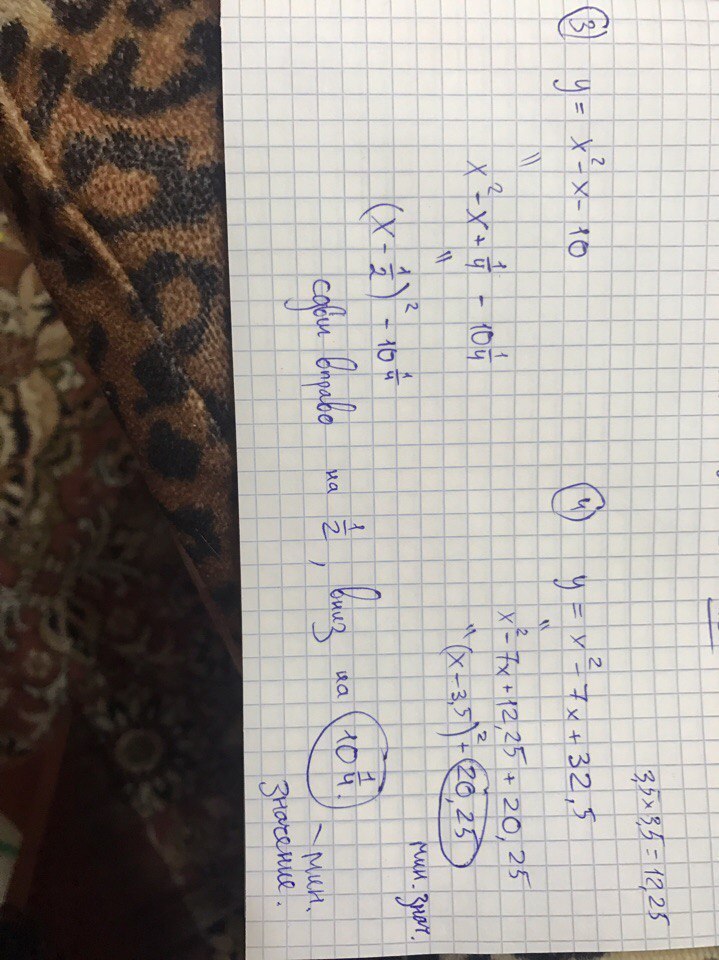 ③ y = x² - x - 10
"
x² - x + 1/4 - 10 1/4
"
(x - 1/2)² - 10 1/4
сдвиг вправо на 1/2, вниз на 10 1/4. - мин.
значение.
3,5 × 3,5 = 12,25
④ y = x² - 7x + 32,5
"
x² - 7x + 12,25 + 20,25
"
(x - 3,5)² + 20,25
мин. знач.